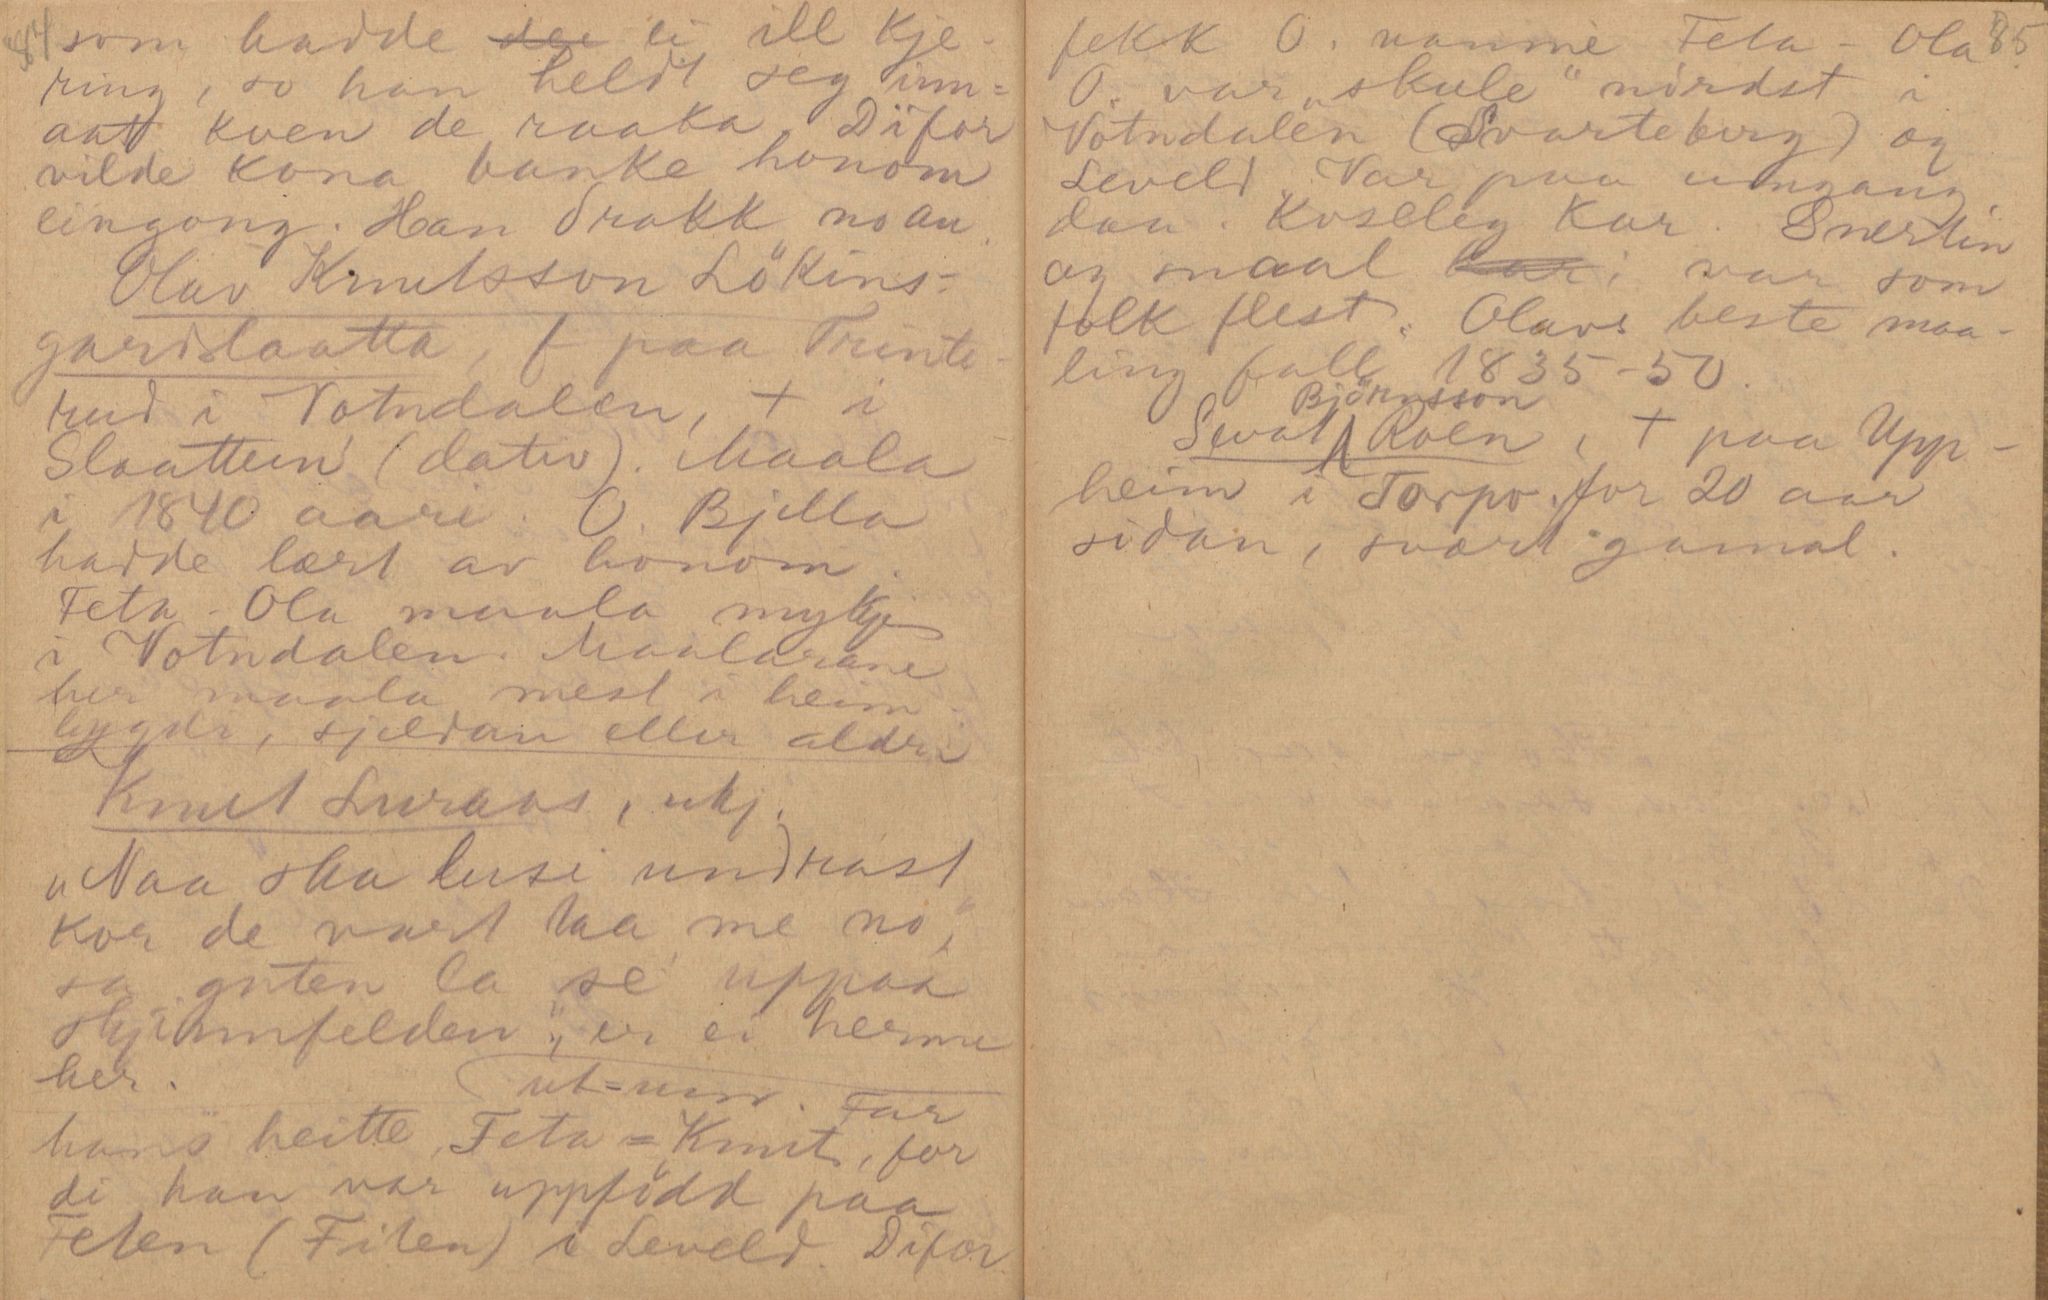 84
som hadde ~~sei~~ ei ill kje-
ring, so han heldt seg inn=
aat kven de raaka. Difor
vilde kona banke honom
eingong. Han drakk no au.
Olav Knutsson Lökins=
gardslaatta, f paa Trinte-
rud i Votndalen, † i
Slaatten (dativ). Maala
i 1840 aari. O. Bjella
hadde lært av honom.
Feta-Ola maala mykje
i Votndalen. Maalarane
her maala mest i heim
bygdi, sjeldan eller aldri
Knut Luraas, ukj.
„Naa ska lusi undrast
kor de vart taa me no",
sa guten la se uppaa
skjinnfelden", er ei herme
her.
ut=um. Far
hans heitte Feta=Knut, for
di han var uppfödd paa
Feten (Fiten) i Leveld. Difor
85
fekk O. namnè Feta-Ola.
O. var „skule" nordst i
Votndalen (Svarteberg) og
Leveld. Var paa umgang
daa. Koseleg kar. Snerten
og snaal ~~kar~~; var som
folk flest. Olavs beste maa-
ling fall 1835-50.
Björnsson
Sevat Roen, † paa Upp-
heim i Torpo for 20 aar
sidan, svært gamal.